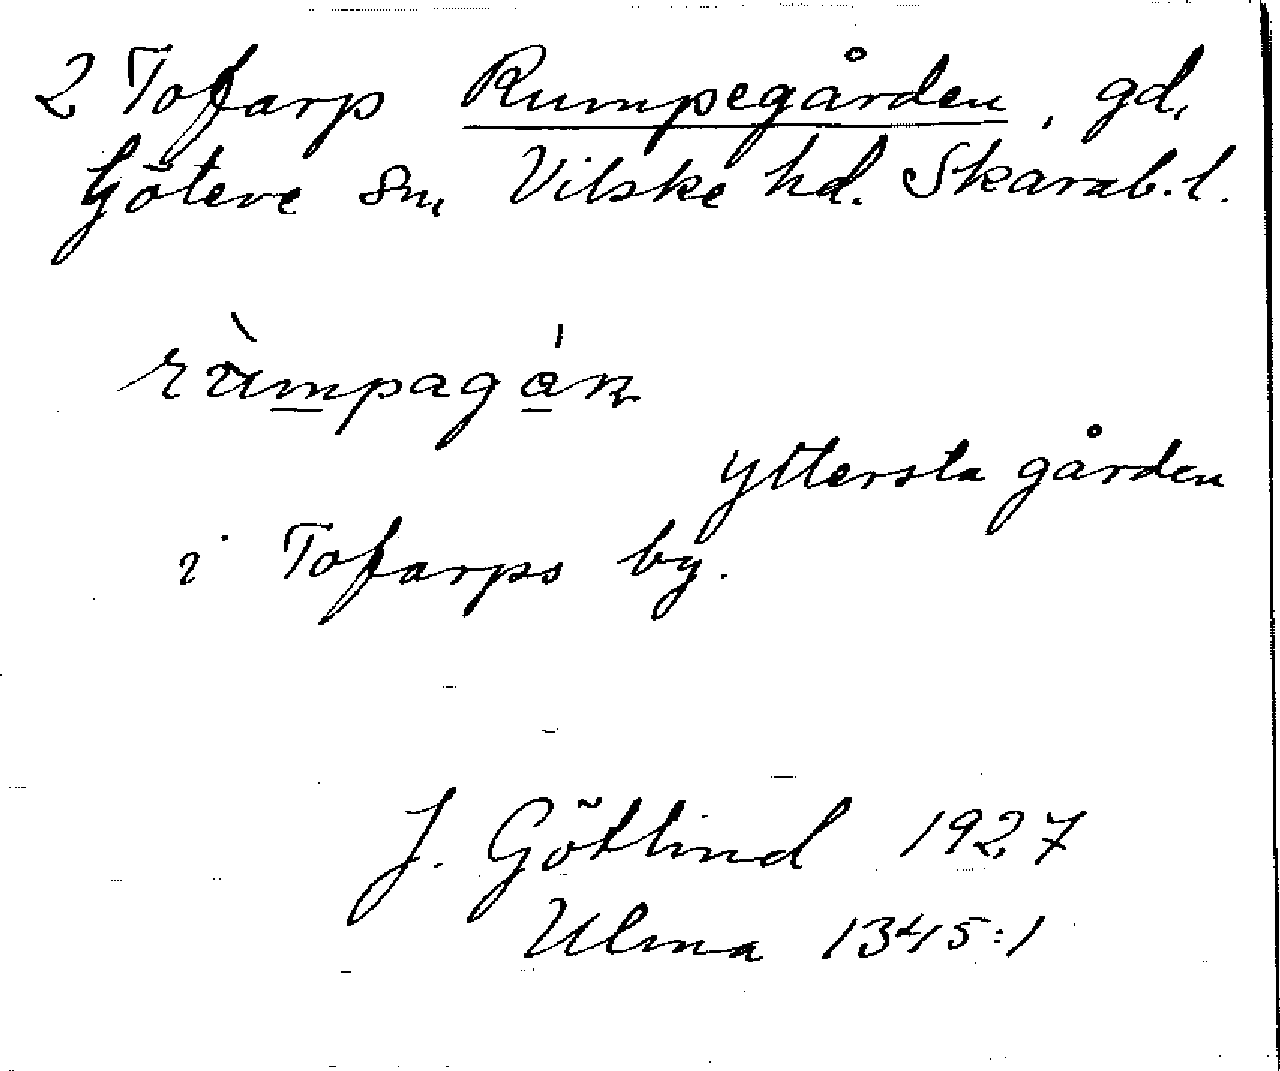 2 Tofarp Rumpegården, gd,
Göteve sn, Vilske hd. Skarab. l.
yttersta gården
i Tofarps by.
J. Götlind 1927
Ulma 1345:1